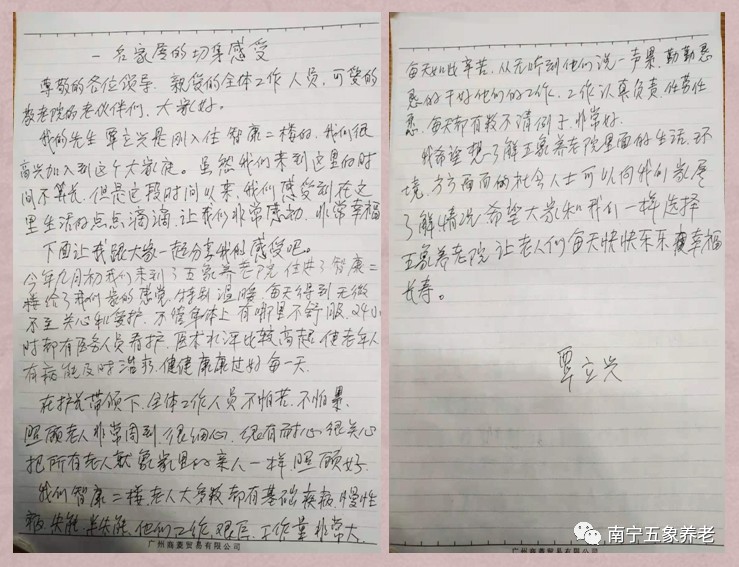 一名家属的切身感受
尊敬的各位领导、亲爱的全体工作人员,可爱的
养老院的老伙伴们,大家好。
我的先生覃立兴是刚入住智康二楼的,我们很
高兴加入到这个大家庭。虽然我们来到这里的时
间不算长,但是这段时间以来,我们感受到在这
里生活的点点滴滴,让我们非常感动,非常幸福
下面让我跟大家一起分享我的感受吧。
今年九月初我们来到了五象养老院,住进了智康二
楼给了我们家的感觉,特别温暖,每天得到无微
不至关心和爱护,不管身体上有哪里不舒服,24小
时都有医务人员看护,医术水平比较高超,使老年人
有病能及时治疗,健健康康过好每一天.
在护长带领下,全体工作人员不怕苦、不怕累,
照顾老人非常周到、很细心、很有耐心、很关心
把所有老人就象家里的亲人一样,照顾好.
我们智康二楼,老人大多数都有基础疾病,慢性
病,失能、半失能,他们工作艰巨,工作量非常大,
广州商麦贸易有限公司
每天如此辛苦,从无听到他们说一声累,勤勤恳
恳的干好他们的工作,工作认真负责,任劳任
怨,每天都有数不清例子,非常好.
我希望想了解五象养老院里面的生活、环
境,方方面面的社会人士可以向我们家属
了解情况,希望大家和我们一样选择
五象养老院,让老人们每天快快乐乐,幸福
长寿。
覃立兴
广州商麦贸易有限公司
南宁五象养老